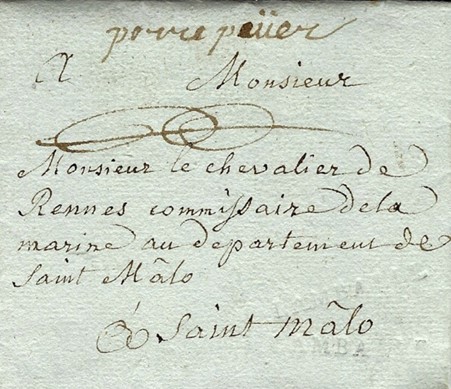 porre paÿer
A Monsieur
Monsieur le chevalier de
Rennes commissaire dela
marine au departement de
Saint Mâlo
à Saint mâlo